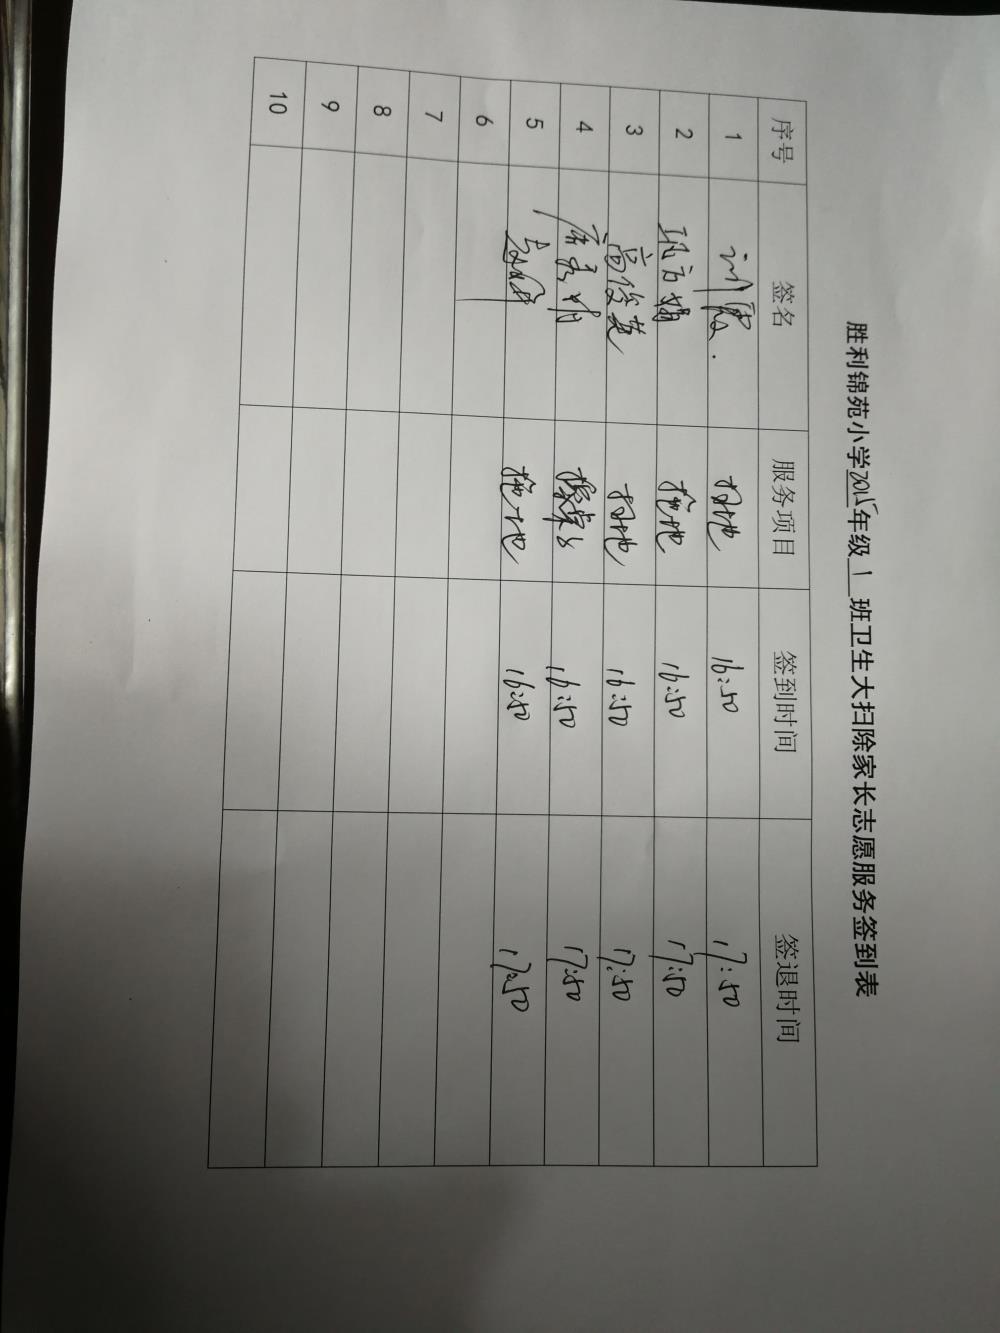 胜利锦苑小学2015年级1班卫生大扫除家长志愿服务签到表
序号 签名 服务项目 签到时间 签退时间
1 刘霞. 扫地 16:50 17:50
2 拖地 16:50 17:50
3 高俊英 扫地 16:50 17:50
4 16:50 17:50
5 拖地 16:50 17:50
6
7
8
9
10